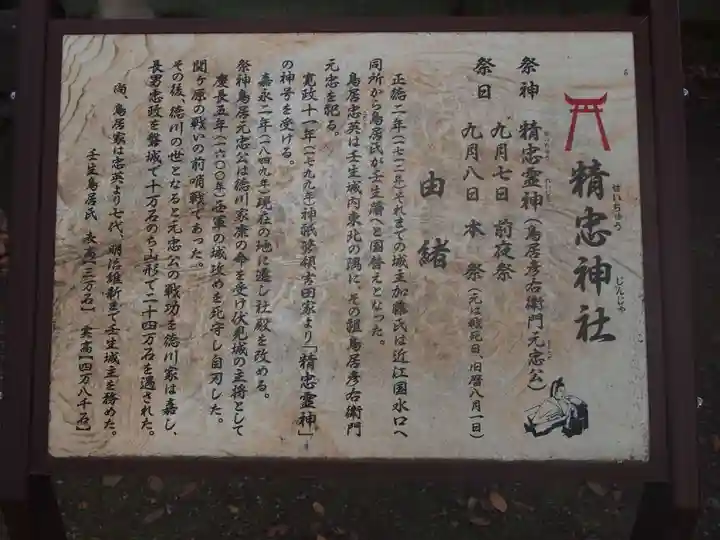 精忠神社
せいちゅう じんじゃ
祭神 精忠霊神(鳥居彦右衛門元忠公)
祭日 九月七日 前夜祭
九月八日 本祭(元は戦死日、旧暦八月一日)
由緒
正徳二年(一七一二)それまでの城主加藤氏は近江国水口へ
同所から鳥居氏が壬生藩へと国替えとなった。
鳥居忠英は壬生城内東北の隅に、その祖鳥居彦右衛門
元忠を祀る。
寛政十一年(一七九九年)神祇管領吉田家より「精忠霊神」
の神号を受ける。
嘉永二年(一八四九年)現在の地に遷し社殿を改める。
祭神鳥居元忠公は徳川家康の命を受け伏見城の主将として
慶長五年(一六〇〇年)西軍の城攻めを死守し自刃した。
関ヶ原の戦いの前哨戦であった。
その後、徳川の世となると元忠公の戦功を徳川家は嘉し、
長男忠政を磐城で十万石のち山形で二十四万石を遇された。
尚、鳥居家は忠英より七代、明治維新まで壬生城主を務めた。
壬生鳥居氏 表高[三万石] 実高[四万八千石]